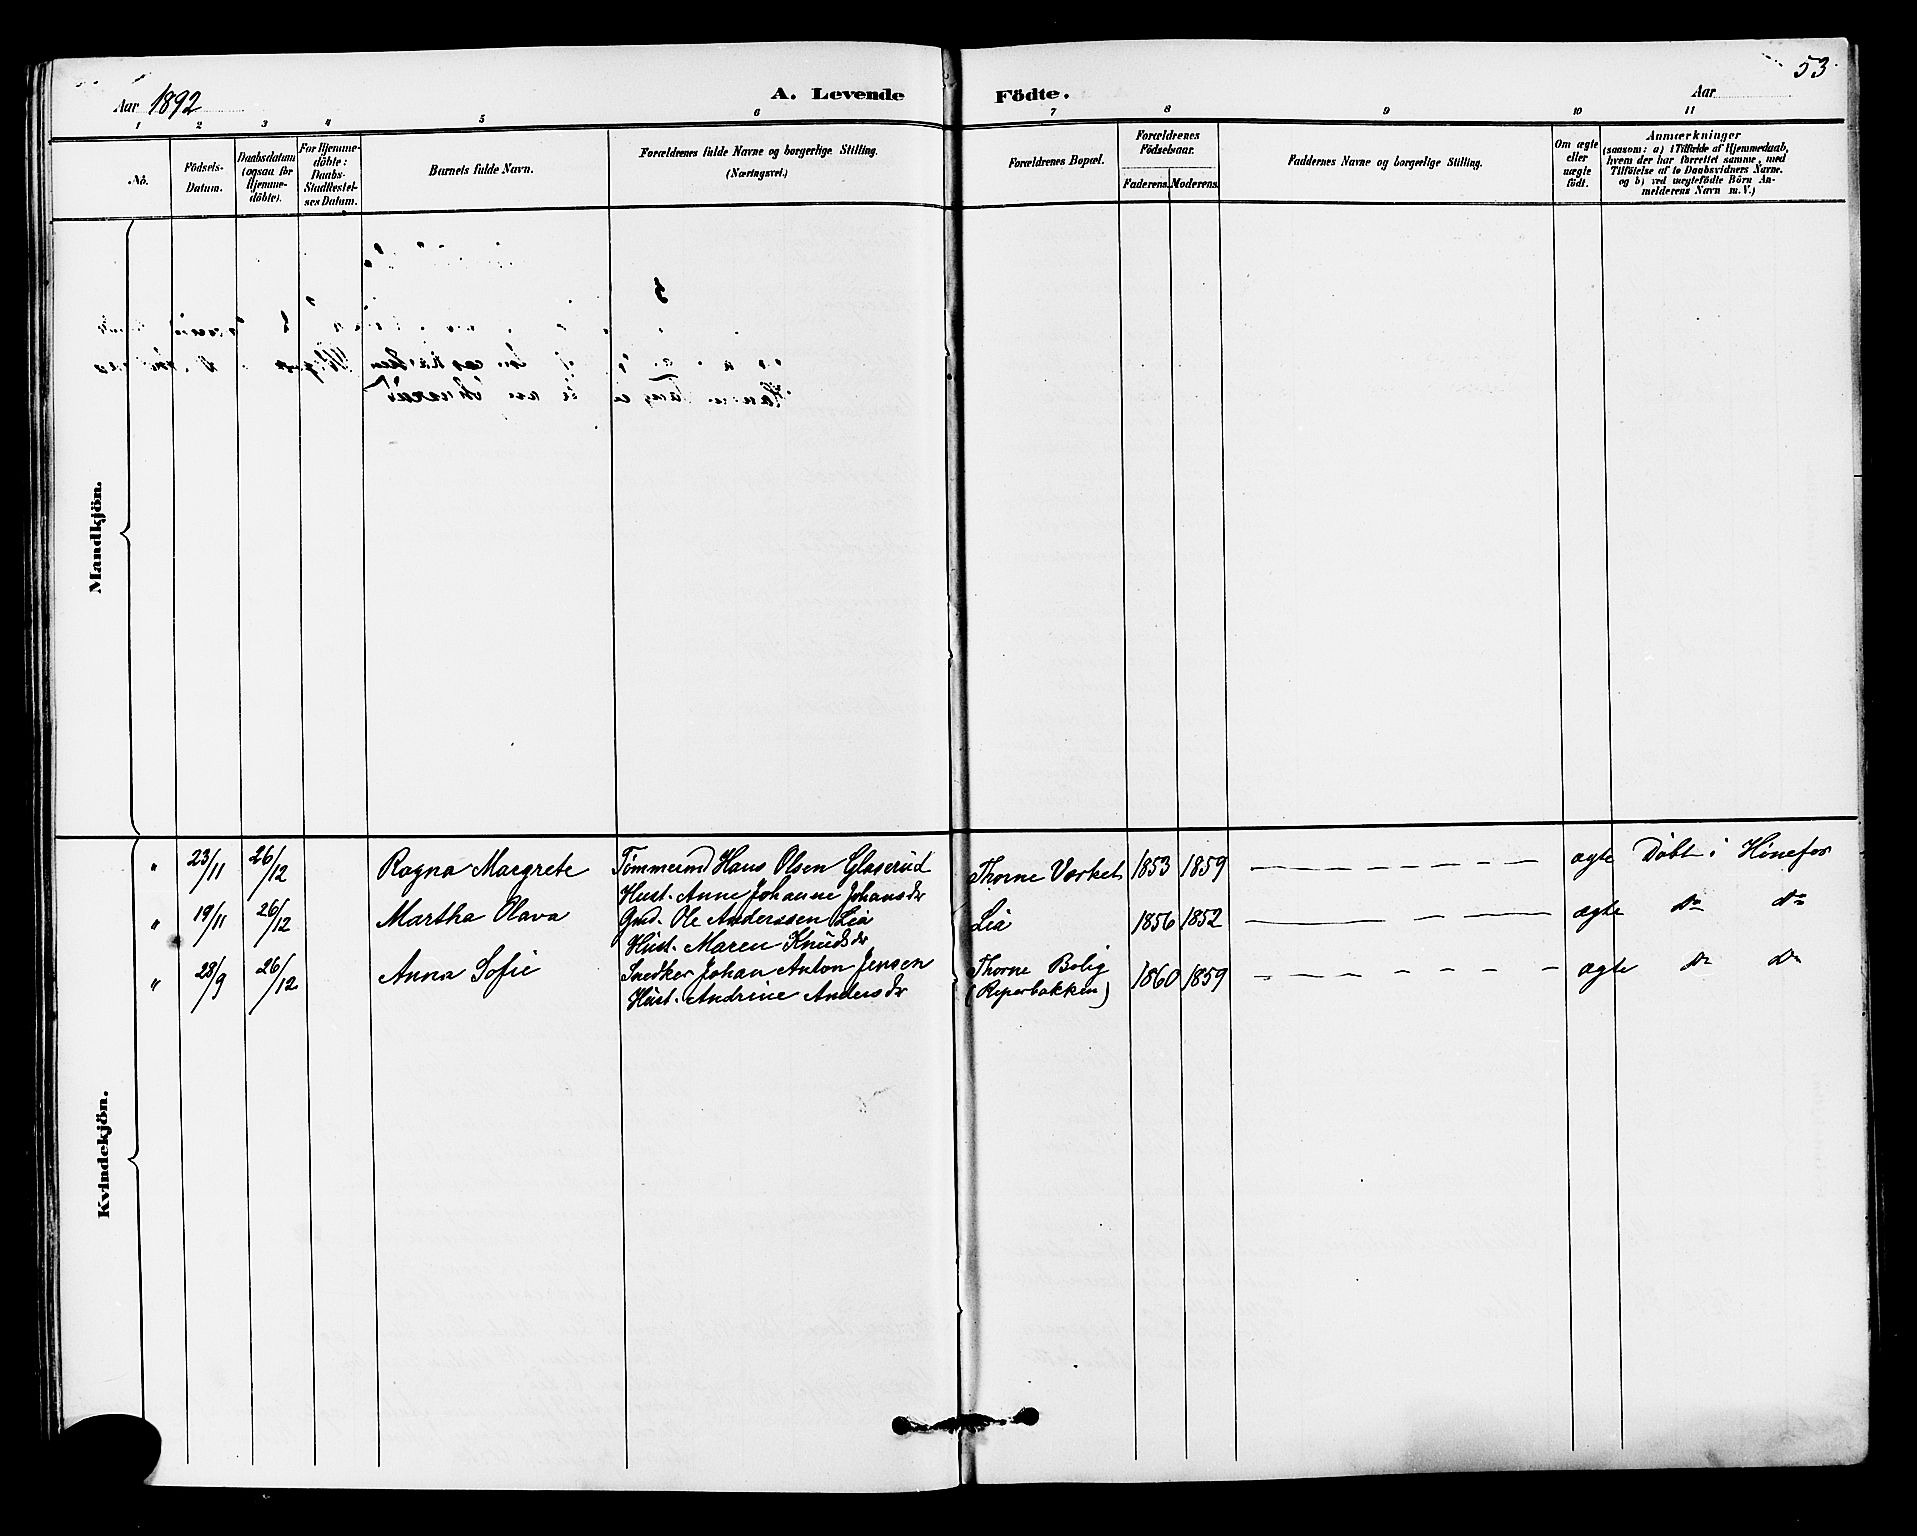 53.
Aar 1892
A. Levende Födte.
Aar
1 2 3 4 5 6 7 8 9 10 11
No.
Födsels-
Datum.
Daabsdatum
(ogsaa for
Hjemme-
döbte).
For Hjemme-
döbte:
Daabs-
Stadfæstel-
ses Datum.
Barnets fulde Navn.
Forældrenes fulde Navne og borgerlige Stilling.
(Næringsvei.)
Forældrenes Bopæl.
Forældrenes
Födselsaar.
Faderens. Moderens.
Faddernes Navne og borgerlige Stilling.
Om ægte
eller
uægte
födt.
Anmærkninger
(saasom: a) i Tilfælde af Hjemmedaab,
hvem der har forrettet samme, med
Tilföielse af to Daabsvidners Navne.
og b) ved uægtefödte Börn An-
melderens Navn m. V.)
Mandkjön.
Kvindekjön.
" 23/11 26/12 Ragna Margrete Tömmermd Hans Olsen Glaserud Thorne Værket 1853 1859 ægte Döbt i Hönefos
Hust. Anne Johanne Johansdr
" 19/11 26/12 Martha Olava Gmd. Ole Anderssen Lia Lia 1856 1852 ægte do do
Hust. Maren Knudsdr
" 28/9 26/12 Anna Sofie Snedker Johan Anton Jensen Thorne Bolig 1860 1859 ægte do do
Hust. Andrine Andersdr (Reperbakken)